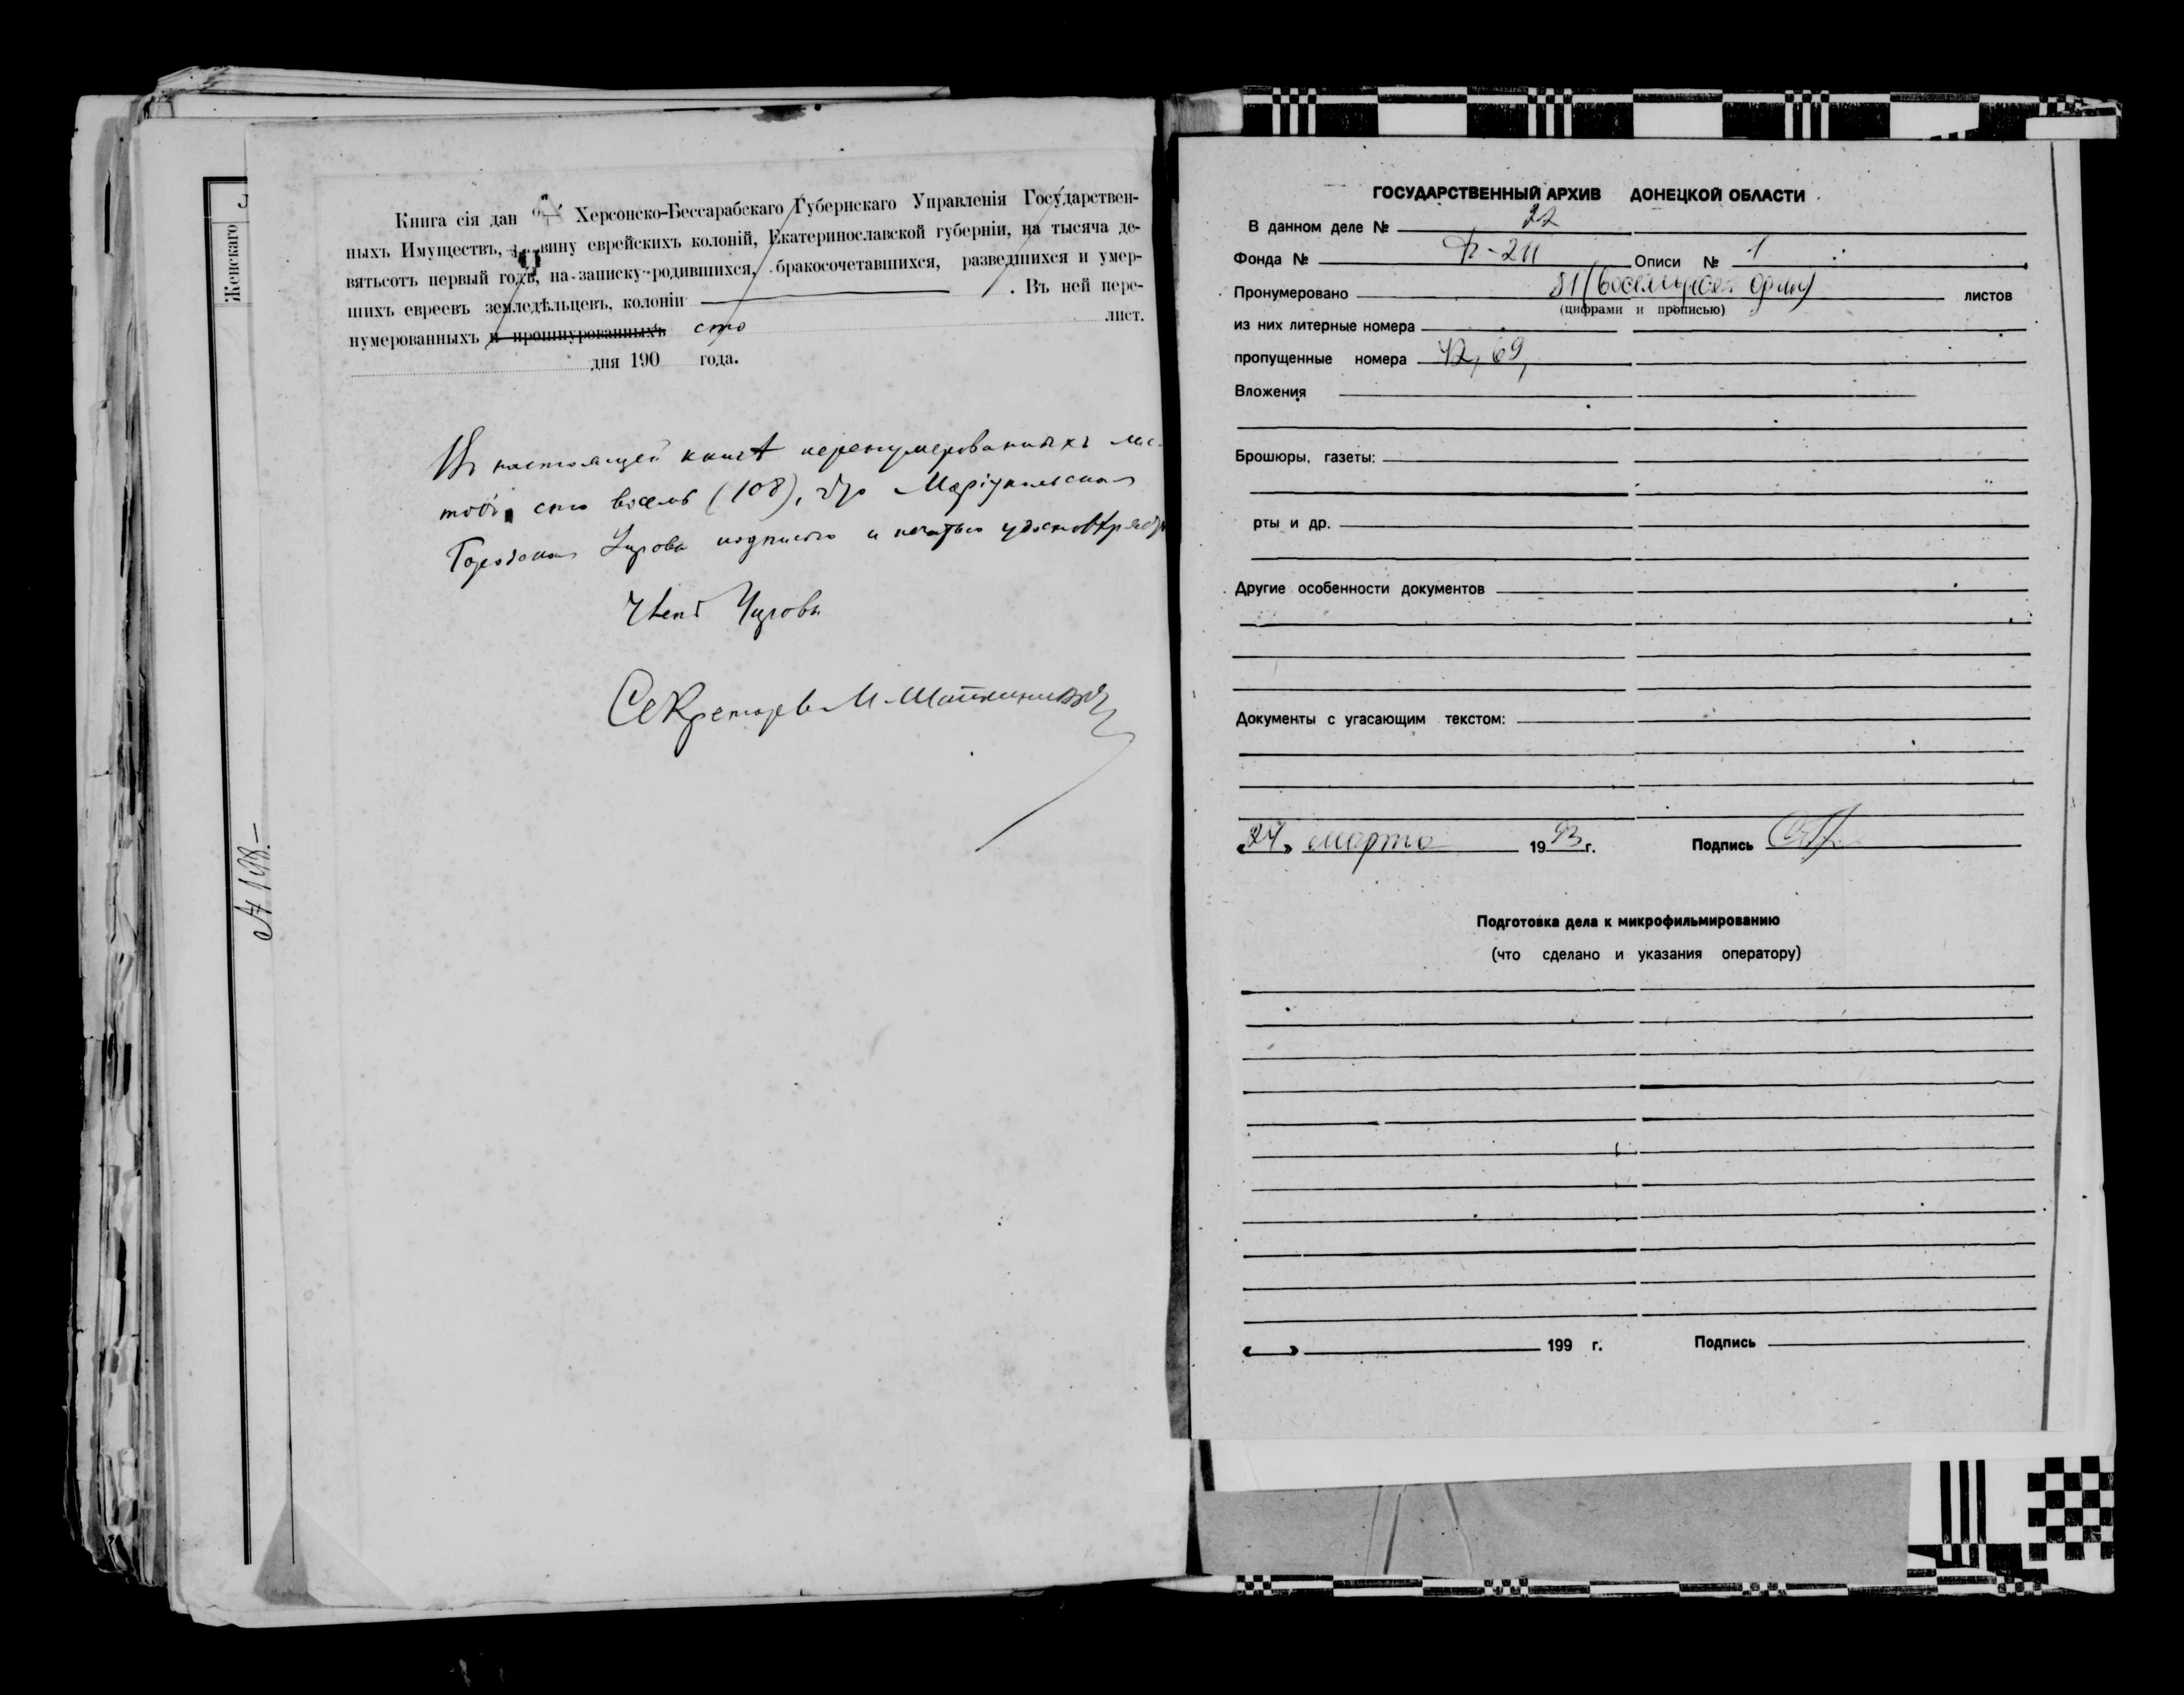 Женскаго
№ 198.—
Книга сія дан Херсонско-Бессарабскаго Губернскаго Управленія Государствен-
ныхъ Имуществъ, вину еврейскихъ колоній, Екатеринославской губерніи, на тысяча де-
вятьсотъ первый годъ, на-записку-родившихся, бракосочетавшихся, разведшихся и умер-
шихъ евреевъ земледѣльцевъ, колоніи . Въ ней пере-
нумерованныхъ и прошнурованныхъ сто лист.
дня 190 года.
Въ настоящей книгѣ перенумерованныхъ лис-
товъ сто восемь (108), что Маріупольская
Городская Управа подписью и печатью удостовѣряетъ
Членъ Управы
Секретарь М.
ГОСУДАРСТВЕННЫЙ АРХИВ ДОНЕЦКОЙ ОБЛАСТИ
В данном деле № 22
Фонда № Описи № 1
Пронумеровано 81 (восемьдесят один) листов
(цифрами и прописью)
из них литерные номера
пропущенные номера 42, 69,
Вложения
Брошюры, газеты:
рты и др.
Другие особенности документов
Документы с угасающим текстом:
«24» марта 1993г. Подпись
Подготовка дела к микрофильмированию
(что сделано и указания оператору)
« » 199 г. Подпись